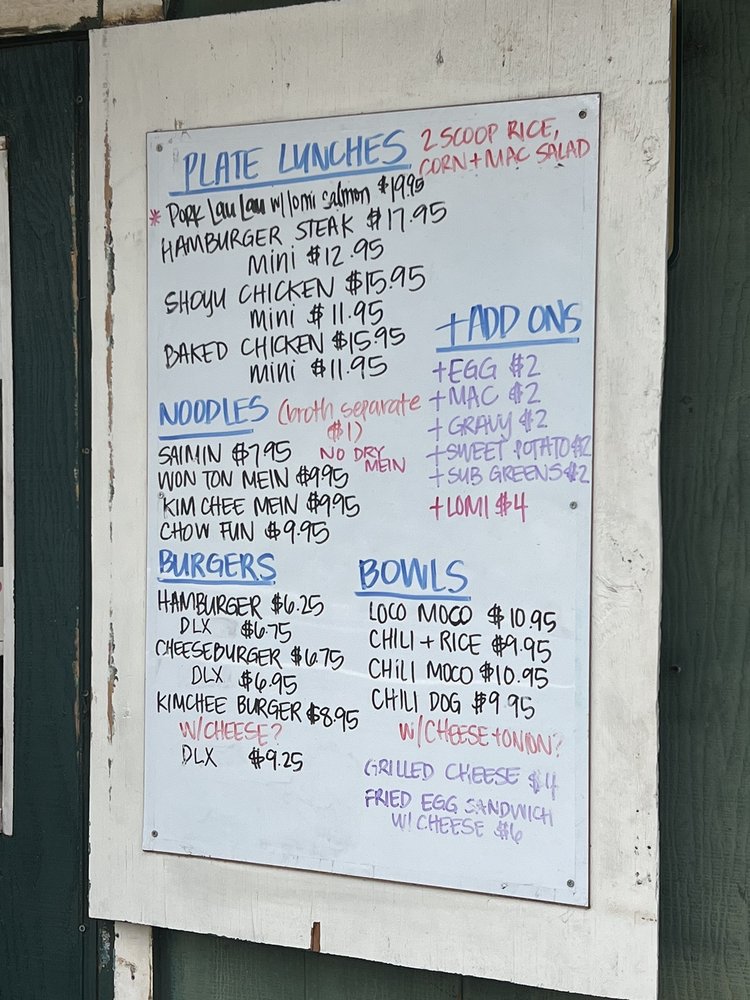 PLATE LUNCHES
2 SCOOP RICE,
CORN + MAC SALAD
* PORK Lau Lau w/ lomi salmon $19.95
HAMBURGER STEAK $17.95
mini $12.95
SHOYU CHICKEN $15.95
mini $11.95
BAKED CHICKEN $15.95
mini $11.95
+ ADD ONS
+ EGG $2
+ MAC $2
+ GRAVY $2
+ SWEET POTATO $2
+ SUB GREENS $2
+ LOMI $4
NOODLES (broth separate
$1)
NO DRY
MEIN
SAIMIN $7.95
WON TON MEIN $9.95
KIM CHEE MEIN $9.95
CHOW FUN $9.95
BURGERS
HAMBURGER $6.25
DLX $6.75
CHEESEBURGER $6.75
DLX $6.95
KIMCHEE BURGER $8.95
W/CHEESE?
DLX $9.25
BOWLS
LOCO MOCO $10.95
CHILI + RICE $9.95
CHILI MOCO $10.95
CHILI DOG $9.95
W/CHEESE + ONION?
GRILLED CHEESE $4
FRIED EGG SANDWICH
W/ CHEESE $6